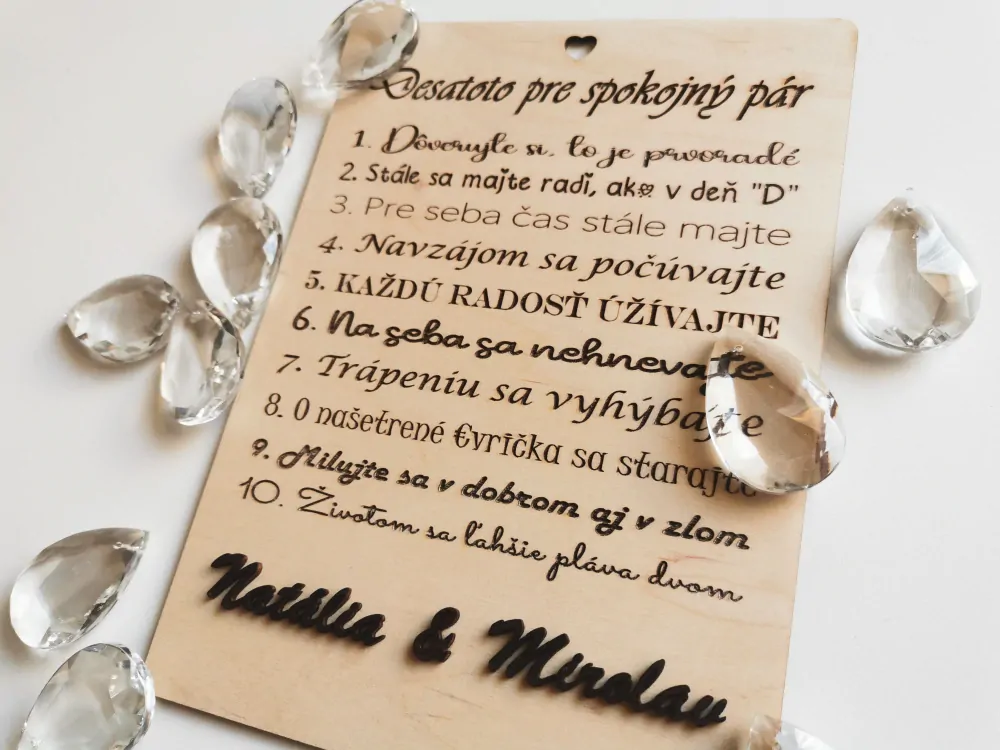 Desatoto pre spokojný pár
1. Dôverujte si, to je prvoradé
2. Stále sa majte radi, ako v deň "D"
3. Pre seba čas stále majte
4. Navzájom sa počúvajte
5. KAŽDÚ RADOSŤ ÚŽÍVAJTE
6. Na seba sa nehnevajte
7. Trápeniu sa vyhýbajte
8. O našetrené €vríčka sa starajte
9. Milujte sa v dobrom aj v zlom
10. Životom sa ľahšie pláva dvom
Natália & Miroslav